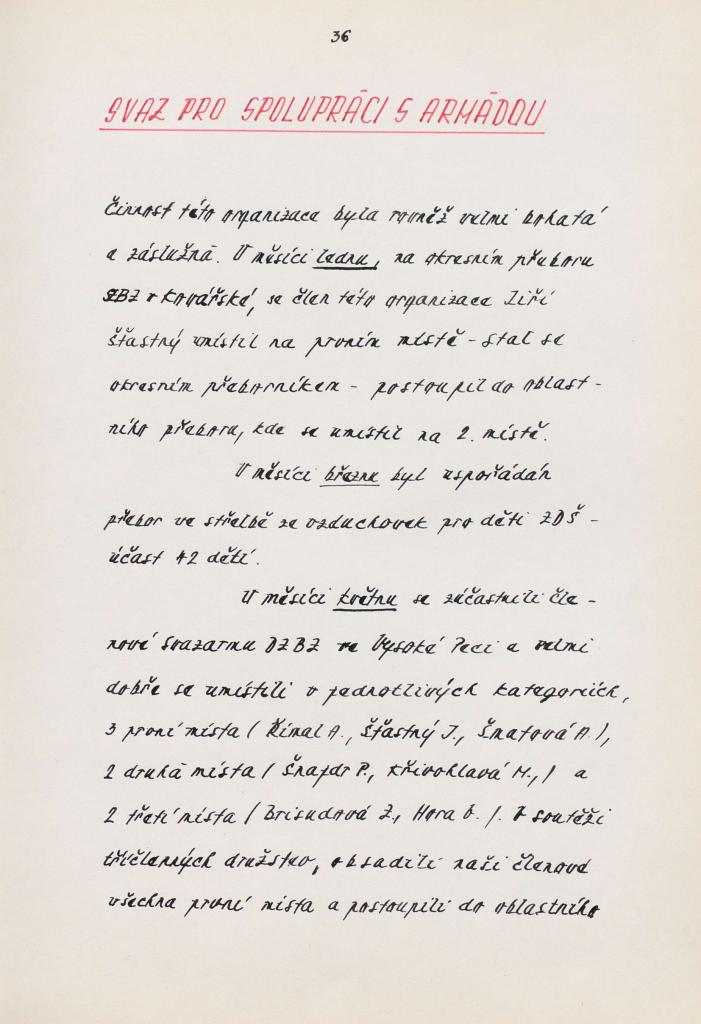 36
SVAZ PRO SPOLUPRÁCI S ARMÁDOU
Činnost této organizace byla rovněž velmi bohatá
a záslužná. V měsíci lednu, na okresním přeboru
SZBZ v Kovářské, se člen této organizace Jiří
Šťastný umístil na prvním místě - stal se
okresním přeborníkem - postoupil do oblast -
ního přeboru, kde se umístil na 2. místě.
V měsíci březnu byl uspořádán
přebor ve střelbě ze vzduchovek pro děti ZDŠ -
účast 42 dětí.
V měsíci květnu se zúčastnili čle -
nové Svazarmu DZBZ ve Vysoké Peci a velmi
dobře se umístili v jednotlivých kategoriích,
3 první místa ( Římal A., Šťastný J., Šmatová A.),
2 druhá místa ( Šnajdr P., Křivohlavá M.,) a
2 třetí místa ( Brisudová Z., Hora V. ). V soutěži
tříčlenných družstev, obsadili naši členové
všechna první místa a postoupili do oblastního